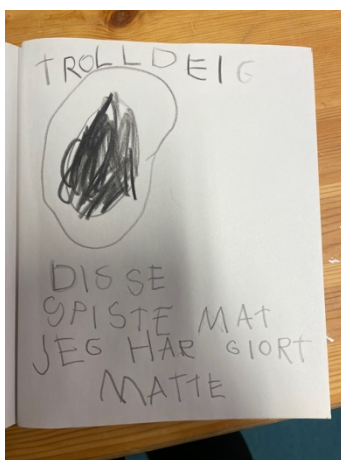 TROLLDEIG
DISSE
SPISTE MAT
JEG HAR GIORT
MATTE